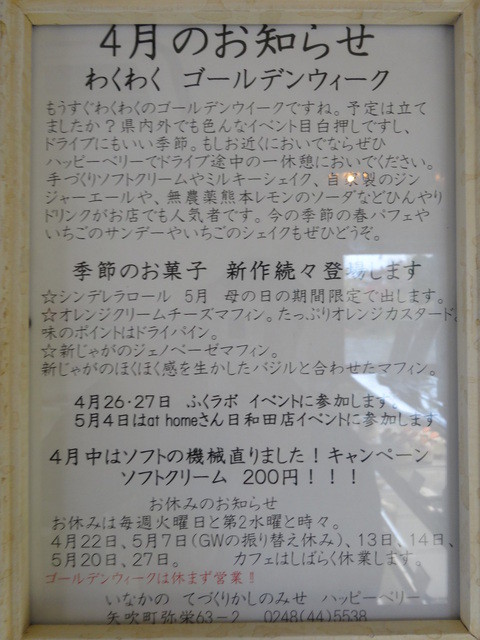 4月のお知らせ
わくわく ゴールデンウィーク
もうすぐわくわくのゴールデンウイークですね。予定は立て
ましたか？県内外でも色んなイベント目白押しですし、
ドライブにもいい季節。もしお近くにおいでならぜひ
ハッピーベリーでドライブ途中の一休憩においでください。
手づくりソフトクリームやミルキーシェイク、自家製のジン
ジャーエールや、無農薬熊本レモンのソーダなどひんやり
ドリンクがお店でも人気者です。今の季節の春パフェや
いちごのサンデーやいちごのシェイクもぜひどうぞ。
季節のお菓子 新作続々登場します
☆シンデレラロール 5月 母の日の期間限定で出します。
☆オレンジクリームチーズマフィン。たっぷりオレンジカスタード。
味のポイントはドライパイン。
☆新じゃがのジェノベーゼマフィン。
新じゃがのほくほく感を生かしたバジルと合わせたマフィン。
4月26・27日 ふくラボ イベントに参加します。
5月4日はat homeさん日和田店イベントに参加します
4月中はソフトの機械直りました！キャンペーン
ソフトクリーム 200円！！！
お休みのお知らせ
お休みは毎週火曜日と第2水曜と時々。
4月22日、5月7日(GWの振り替え休み)、13日、14日、
5月20日、27日。 カフェはしばらく休業します。
ゴールデンウィークは休まず営業！
いなかの てづくりかしのみせ ハッピーベリー
矢吹町弥栄63－2 0248(44)5538